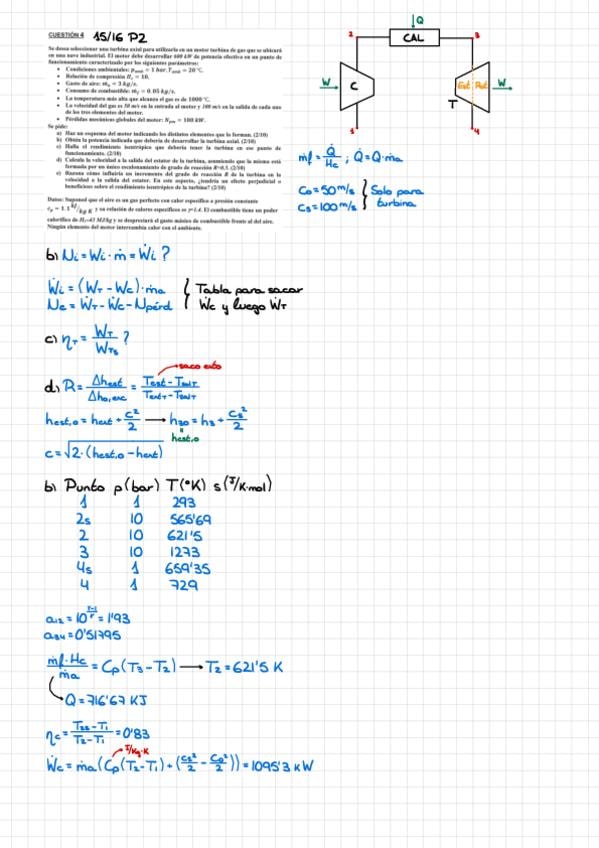 CUESTIÓN 4 15/16 P2
Se desea seleccionar una turbina axial para utilizarla en un motor turbina de gas que se ubicará
en una nave industrial. El motor debe desarrollar 600 kW de potencia efectiva en un punto de
funcionamiento caracterizado por los siguientes parámetros:
• Condiciones ambientales: pamb = 1 bar, Tamb = 20°C.
• Relación de compresión Πc = 10.
• Gasto de aire: ṁa = 3 kg/s.
• Consumo de combustible: ṁf = 0.05 kg/s.
• La temperatura más alta que alcanza el gas es de 1000°C.
• La velocidad del gas es 50 m/s en la entrada al motor y 100 m/s en la salida de cada uno
de los tres elementos del motor.
• Pérdidas mecánicas globales del motor: Npm = 100 kW.
Se pide:
a) Haz un esquema del motor indicando los distintos elementos que lo forman. (2/10)
b) Obtén la potencia indicada que debería de desarrollar la turbina axial. (2/10)
c) Halla el rendimiento isentrópico que debería tener la turbina en ese punto de
funcionamiento. (2/10)
d) Calcula la velocidad a la salida del estator de la turbina, asumiendo que la misma está
formada por un único escalonamiento de grado de reacción R=0.5. (2/10)
e) Razona cómo influiría un incremento del grado de reacción R de la turbina en la
velocidad a la salida del estator. En este aspecto, ¿tendría un efecto perjudicial o
beneficioso sobre el rendimiento isentrópico de la turbina? (2/10)
Datos: Suponed que el aire es un gas perfecto con calor específico a presión constante
cp = 1.1 kJ/kg K y su relación de calores específicos es γ=1.4. El combustible tiene un poder
calorífico de Hc=43 MJ/kg y se despreciará el gasto másico de combustible frente al del aire.
Ningún elemento del motor intercambia calor con el ambiente.
Q
2 CAL 3
W C Est Rot W
T
1 4
ṁf = Q̇/Hc ; Q̇ = Q·ṁa
C0 = 50 m/s } Solo para
Cs = 100 m/s } turbina
b) Ni = Wi · ṁ = Ẇi ?
Ẇi = (WT - Wc)·ṁa { Tabla para sacar
Ne = ẆT - Ẇc - Npérd { Ẇc y luego ẆT
c) ηT = WT/WTs ?
saco esto
d) R = Δhest/Δho,esc = Test - Tsal T/Tent T - Tsal T
hest,o = hest + c²/2 → h30 = h3 + C3²/2
hest,o
c = √2·(hest,o - hest)
b) Punto p(bar) T(°K) s(J/K·mol)
1 1 293
2s 10 565'69
2 10 621'5
3 10 1273
4s 1 659'35
4 1 729
a12 = 10^(γ-1/γ) = 1'93
a34 = 0'51795
ṁf·Hc/ṁa = Cp(T3 - T2) → T2 = 621'5 K
Q = 716'67 KJ
ηc = T2s - T1/T2 - T1 = 0'83
J/Kg·K
Ẇc = ṁa(Cp(T2 - T1) + (Cs²/2 - C0²/2)) = 1095'3 kW